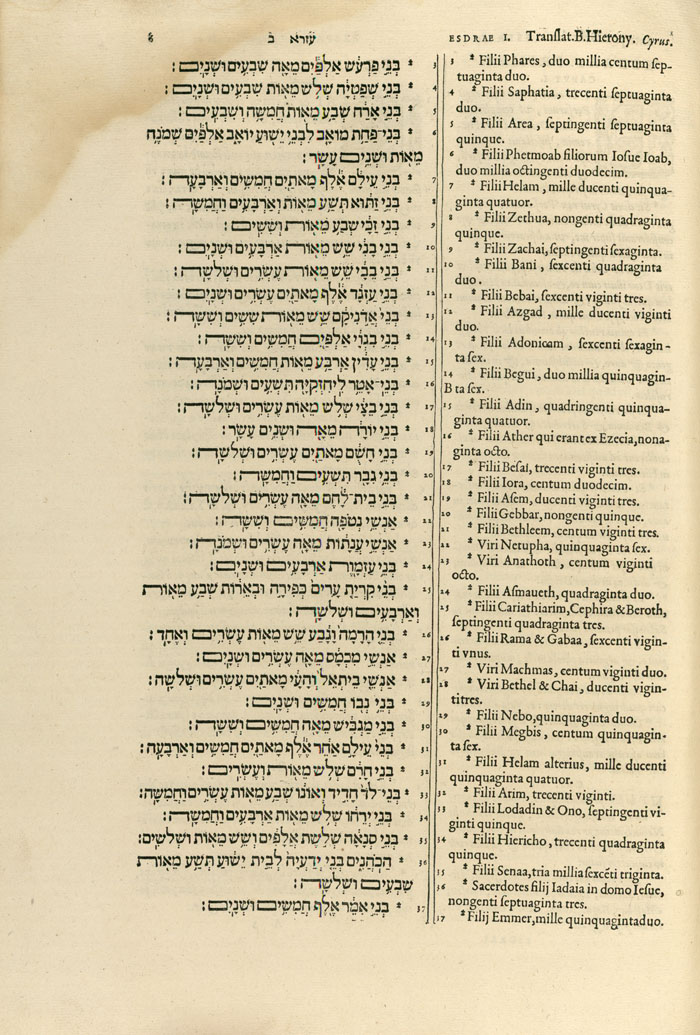 8 עזרא ב
* בְּנֵי פַרְעֹשׁ אַלְפַּיִם מֵאָה שִׁבְעִים וּשְׁנָיִם׃ 3
* בְּנֵי שְׁפַטְיָה שְׁלֹשׁ מֵאוֹת שִׁבְעִים וּשְׁנָיִם׃ 4
* בְּנֵי אָרַח שְׁבַע מֵאוֹת חֲמִשָּׁה וְשִׁבְעִים׃ 5
* בְּנֵי־פַחַת מוֹאָב לִבְנֵי יֵשׁוּעַ יוֹאָב אַלְפַּיִם שְׁמֹנֶה 6
מֵאוֹת וּשְׁנֵים עָשָׂר׃
* בְּנֵי עֵילָם אֶלֶף מָאתַיִם חֲמִשִּׁים וְאַרְבָּעָה׃ 7
* בְּנֵי זַתּוּא תְּשַׁע מֵאוֹת וְאַרְבָּעִים וַחֲמִשָּׁה׃ 8
* בְּנֵי זַכָּי שְׁבַע מֵאוֹת וְשִׁשִּׁים׃ 9
* בְּנֵי בָנִי שֵׁשׁ מֵאוֹת אַרְבָּעִים וּשְׁנָיִם׃ 10
* בְּנֵי בֵבָי שֵׁשׁ מֵאוֹת עֶשְׂרִים וּשְׁלֹשָׁה׃ 11
* בְּנֵי עַזְגָּד אֶלֶף מָאתַיִם עֶשְׂרִים וּשְׁנָיִם׃ 12
* בְּנֵי אֲדֹנִיקָם שֵׁשׁ מֵאוֹת שִׁשִּׁים וְשִׁשָּׁה׃ 13
* בְּנֵי בִגְוָי אַלְפַּיִם חֲמִשִּׁים וְשִׁשָּׁה׃ 14
* בְּנֵי עָדִין אַרְבַּע מֵאוֹת חֲמִשִּׁים וְאַרְבָּעָה׃ 15
* בְּנֵי־אָטֵר לִיחִזְקִיָּה תִּשְׁעִים וּשְׁמֹנָה׃ 16
* בְּנֵי בֵצָי שְׁלֹשׁ מֵאוֹת עֶשְׂרִים וּשְׁלֹשָׁה׃ 17
* בְּנֵי יוֹרָה מֵאָה וּשְׁנֵים עָשָׂר׃ 18
* בְּנֵי חָשֻׁם מָאתַיִם עֶשְׂרִים וּשְׁלֹשָׁה׃ 19
* בְּנֵי גִבָּר תִּשְׁעִים וַחֲמִשָּׁה׃ 20
* בְּנֵי בֵית־לָחֶם מֵאָה עֶשְׂרִים וּשְׁלֹשָׁה׃ 21
* אַנְשֵׁי נְטֹפָה חֲמִשִּׁים וְשִׁשָּׁה׃ 22
* אַנְשֵׁי עֲנָתוֹת מֵאָה עֶשְׂרִים וּשְׁמֹנָה׃ 23
* בְּנֵי עַזְמָוֶת אַרְבָּעִים וּשְׁנָיִם׃ 24
* בְּנֵי קִרְיַת עָרִים כְּפִירָה וּבְאֵרוֹת שְׁבַע מֵאוֹת 25
וְאַרְבָּעִים וּשְׁלֹשָׁה׃
* בְּנֵי הָרָמָה וָגָבַע שֵׁשׁ מֵאוֹת עֶשְׂרִים וְאֶחָד׃ 26
* אַנְשֵׁי מִכְמָס מֵאָה עֶשְׂרִים וּשְׁנָיִם׃ 27
* אַנְשֵׁי בֵיתאֵל וְהָעָי מָאתַיִם עֶשְׂרִים וּשְׁלֹשָׁה׃ 28
* בְּנֵי נְבוֹ חֲמִשִּׁים וּשְׁנָיִם׃ 29
* בְּנֵי מַגְבִּישׁ מֵאָה חֲמִשִּׁים וְשִׁשָּׁה׃ 30
* בְּנֵי עֵילָם אַחֵר אֶלֶף מָאתַיִם חֲמִשִּׁים וְאַרְבָּעָה׃ 31
* בְּנֵי חָרִם שְׁלֹשׁ מֵאוֹת וְעֶשְׂרִים׃ 32
* בְּנֵי־לֹד חָדִיד וְאוֹנוֹ שְׁבַע מֵאוֹת עֶשְׂרִים וַחֲמִשָּׁה׃ 33
* בְּנֵי יְרֵחוֹ שְׁלֹשׁ מֵאוֹת אַרְבָּעִים וַחֲמִשָּׁה׃ 34
* בְּנֵי סְנָאָה שְׁלֹשֶׁת אֲלָפִים וְשֵׁשׁ מֵאוֹת וּשְׁלֹשִׁים׃ 35
* הַכֹּהֲנִים בְּנֵי יְדַעְיָה לְבֵית יֵשׁוּעַ תְּשַׁע מֵאוֹת 36
שִׁבְעִים וּשְׁלֹשָׁה׃
* בְּנֵי אִמֵּר אֶלֶף חֲמִשִּׁים וּשְׁנָיִם׃ 37
ESDRAE I. Translat.B.Hierony. Cyrus.
3 * Filii Phares, duo millia centum sep-
tuaginta duo.
4 * Filii Saphatia, trecenti septuaginta
duo.
5 * Filii Area, septingenti septuaginta
quinque.
6 * Filii Phetmoab filiorum Iosue Ioab,
duo millia octingenti duodecim.
7 * Filii Helam, mille ducenti quinqua-
ginta quatuor.
8 * Filii Zethua, nongenti quadraginta
quinque.
9 * Filii Zachai, septingenti sexaginta.
10 * Filii Bani, sexcenti quadraginta
duo.
11 * Filii Bebai, sexcenti viginti tres.
12 * Filii Azgad, mille ducenti viginti
duo.
13 * Filii Adonicam, sexcenti sexagin-
ta sex.
14 * Filii Begui, duo millia quinquagin-
B ta sex.
15 * Filii Adin, quadringenti quinqua-
ginta quatuor.
16 * Filii Ather qui erant ex Ezecia, nona-
ginta octo.
17 * Filii Besai, trecenti viginti tres.
18 * Filii Iora, centum duodecim.
19 * Filii Asem, ducenti viginti tres.
20 * Filii Gebbar, nongenti quinque.
21 * Filii Bethleem, centum viginti tres.
22 * Viri Netupha, quinquaginta sex.
23 * Viri Anathoth, centum viginti
octo.
24 * Filii Asmaueth, quadraginta duo.
25 * Filii Cariathiarim, Cephira & Beroth,
septingenti quadraginta tres.
26 * Filii Rama & Gabaa, sexcenti vigin-
ti vnus.
27 * Viri Machmas, centum viginti duo.
28 * Viri Bethel & Chai, ducenti vigin-
ti tres.
29 * Filii Nebo, quinquaginta duo.
30 * Filii Megbis, centum quinquagin-
ta sex.
31 * Filii Helam alterius, mille ducenti
quinquaginta quatuor.
32 * Filii Arim, trecenti viginti.
33 * Filii Lodadin & Ono, septingenti vi-
ginti quinque.
34 * Filii Hiericho, trecenti quadraginta
quinque.
35 * Filii Senaa, tria millia sexcēti triginta.
36 * Sacerdotes filij Iadaia in domo Iesue,
nongenti septuaginta tres.
37 * Filij Emmer, mille quinquaginta duo.